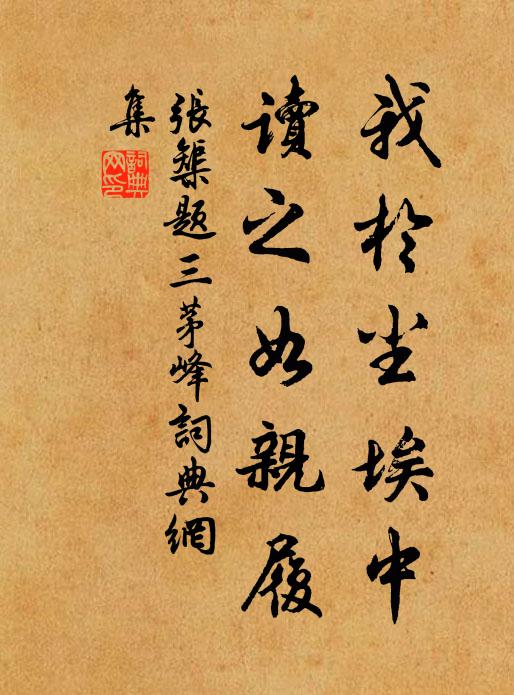 我於尘埃中
讀之如親履
張榘題三茅峰詞典網
集
詞典
网印